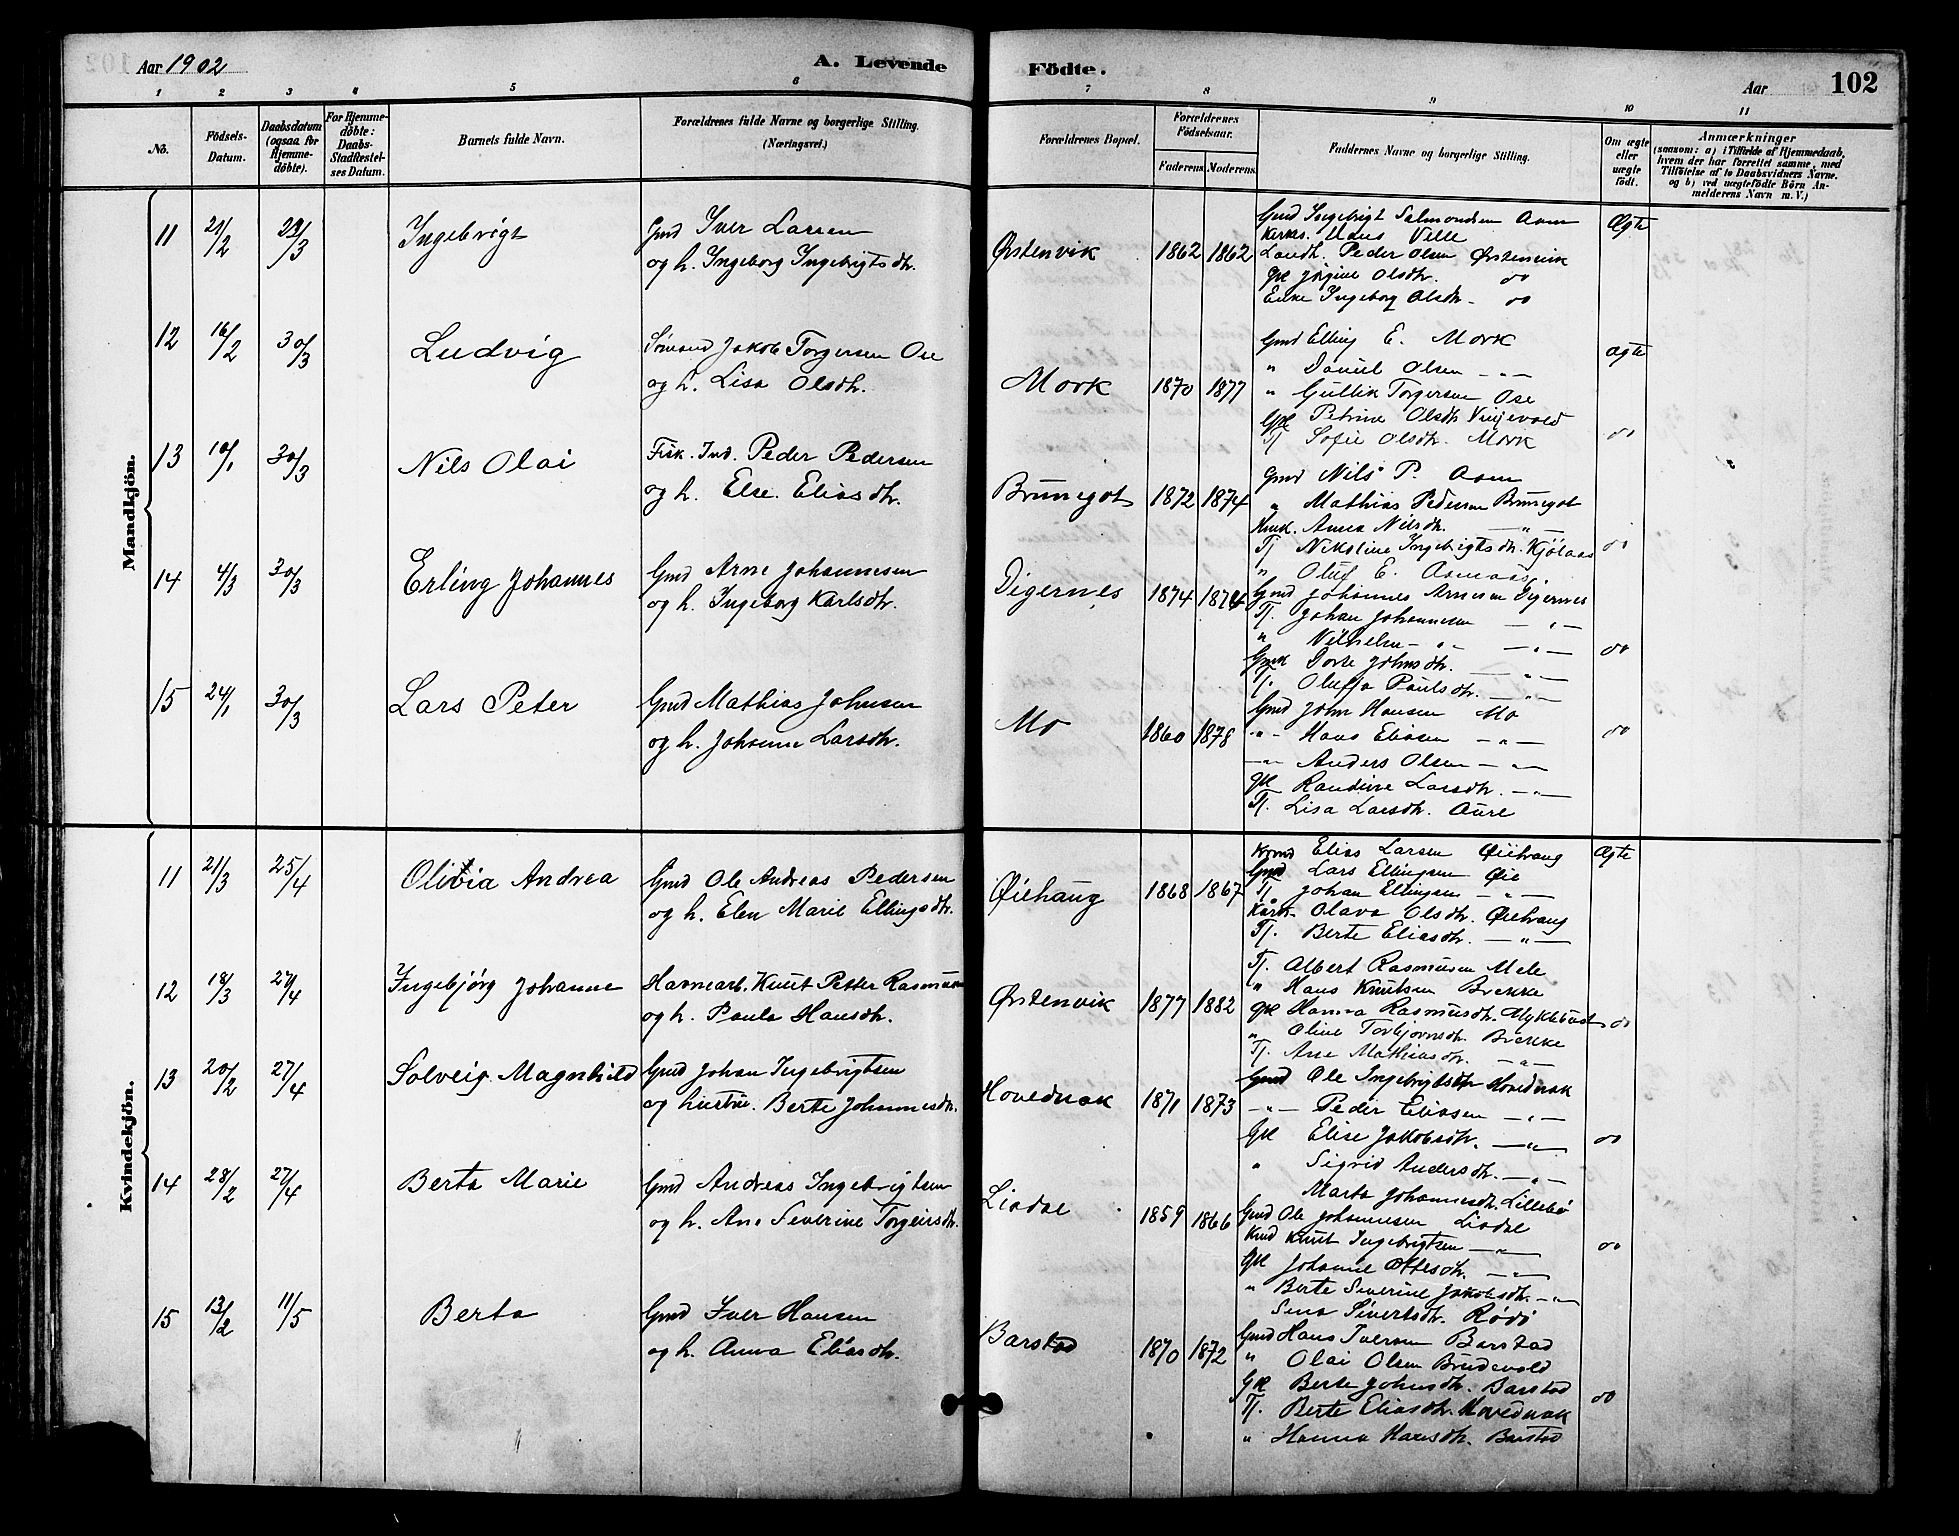 Aar 1902
A. Levende
Födte.
Aar
102
1 2 3 4 5 6 7 8 9 10 11
No.
Födsels-
Datum.
Daabsdatum
(ogsaa for
Hjemme-
döbte).
For Hjemme-
döbte:
Daabs-
Stadfæstel-
ses Datum.
Barnets fulde Navn.
Forældrenes fulde Navne og borgerlige Stilling.
(Næringsvei.)
Forældrenes Bopæl.
Forældrenes
Födselsaar.
Faderens
Moderens
Faddernes Navne og borgerlige Stilling.
Om ægte
eller
uægte
födt.
Anmærkninger
(saasom: a) i Tilfælde af Hjemmedaab,
hvem der har forrettet samme, med
Tilföielse af to Daabsvidners Navne.
og b) ved uægtefödte Börn An-
melderens Navn m. V.)
Mandkjön.
11 21/2 23/3 Ingebrigt
Gmd Iver Larsen
og h. Ingeborg Ingebrigtsdtr.
Ørstenvik 1862 1862
Gmd Ingebrigt Salmondsen Aam
Hans Velle
Landh. Peder Olsen Ørstenvik
Gpl Jörgine Olsdtr. do
Enke Ingeborg Olsdtr. do
Ægte
12 16/2 30/3 Ludvig
Sömand Jakob Torgersen Ose
og h. Lisa Olsdtr.
Mork 1870 1877
Gmd Elling E. Mork
" Daniel Olsen — " —
" Gullik Torgersen Ose
Gpl Petrine Olsdtr Vinjevold
Tj Sofie Olsdtr. Mork
ægte
13 10/1 30/3 Nils Olai
Fisk. Ind. Peder Pedersen
og h. Else Eliasdtr.
Brungot 1872 1874
Gmd Nils P. Aam
" Mathias Pedersen Brungot
Anna Nilsdtr. — " —
Tj Nikoline Ingebrigtsdtr. Kjölaas
" Oluf E. Aamaas
do
14 4/3 30/3 Erling Johannes
Gmd Arne Johannesen
og h. Ingeborg Karlsdtr.
Digernes 1874 1874
Gmd Johannes Arnesen Digernes
Tj. Johan Johannesen — " —
" Vilhelm — " — — " —
Gmk Dorte Johnsdtr. — " —
Tj. Oluffa Paulsdtr. — " —
do
15 24/1 30/3 Lars Peter
Gmd Mathias Johnsen
og h. Johanne Larsdtr.
Mo 1860 1878
Gmd John Hansen Mo
— " — Hans Eliasen — " —
— " — Anders Olsen — " —
Gpl Randine Larsdtr. — " —
Tj. Lisa Larsdtr. Aure
do
do
Kvindekjön.
11 21/3 25/4 Olivia Andrea
Gmd Ole Andreas Pedersen
og h. Elen Marie Ellingsdtr.
Øiehaug 1868 1867
Elias Larsen Øiehaug
Gmd Lars Ellingsen Øie
Tj Johan Ellingsen — " —
Olava Olsdtr. Øiehaug
Tj. Berte Eliasdtr. — " —
Ægte
12 18/3 27/4 Ingebjörg Johanne
Havnearb. Knut Petter Rasmussen
og h. Paula Hansdtr.
Ørstenvik 1877 1882
Tj. Albert Rasmusen Mele
" Hans Knutsen Brekke
Gpl Hanna Rasmusdtr. Myklebust
" Oline Torbjornsdtr. Brekke
Tj. Ane Mathiasdtr. — " —
do
13 20/2 27/4 Solveig Magnhild
Gmd Johan Ingebrigtsen
og hustru. Berte Johannesdtr.
Hovednak 1871 1873
Gmd Ole Ingebrigtsen Hovednak
— " — Peder Eliasen — " —
Gpl Elise Jakobsdtr. — " —
" Sigrid Andersdtr. — " —
Marta Johannesdtr. Lillebö
do
14 28/2 27/4 Berta Marie
Gmd Andreas Ingebrigtsen
og h. Ane Severine Torgeirsdtr.
Liadal 1859 1866
Gmd Ole Johannesen Liadal
Kmd Knut Ingebrigtsen — " —
Gpl Johanne Ottesdtr. — " —
" Berte Severine Jakobsdtr. — " —
Sena Sivertsdtr. Rödö
do
15 13/2 11/5 Berta
Gmd Iver Hansen
og h. Anna Eliasdtr.
Barstad 1870 1872
Gmd Hans Iversen Barstad
" Olai Olsen Brudevold
Gpl Berte Johnsdtr. Barstad
Tj. Berte Eliasdtr. Hovednak
" Hanna Hansdtr. Barstad
do